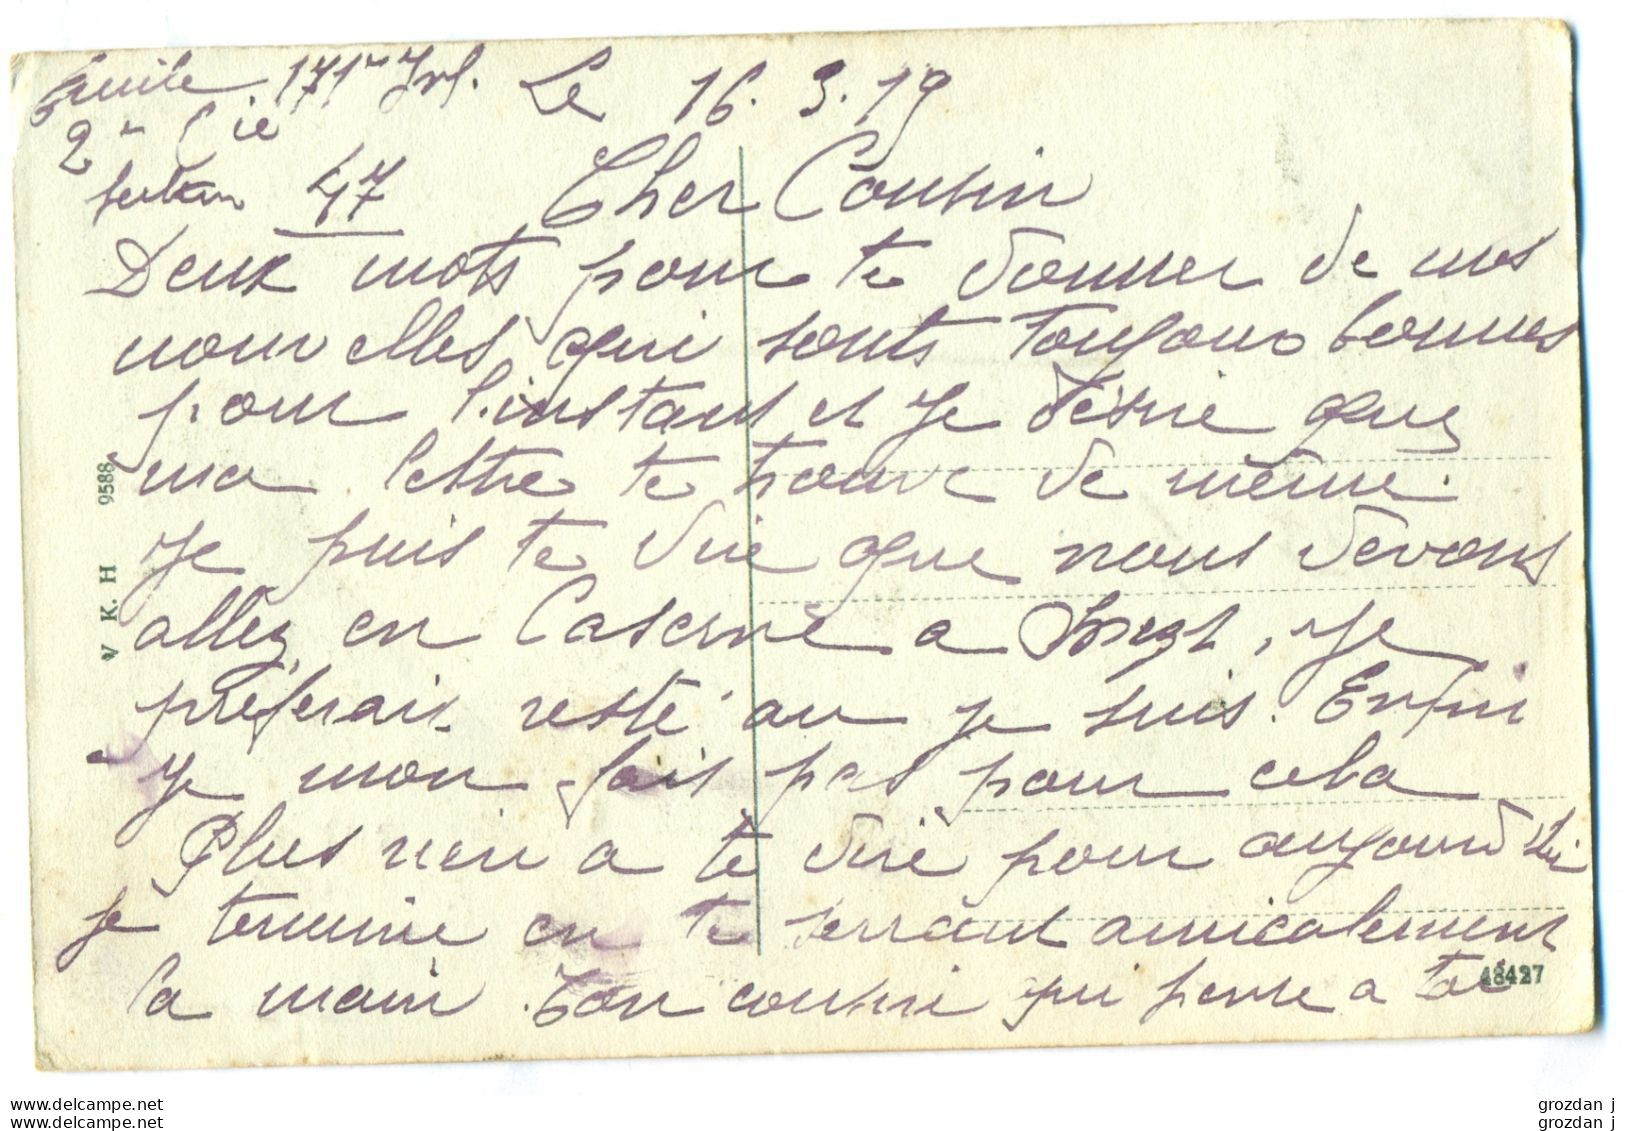 Emile 171e Inf. Le 16. 3. 19
2e Cie
secteur 47 Cher Cousin
Deux mots pour te donner de mes
nouvelles qui sonts toujours bonnes
pour l'instant et je désire que
ma lettre te trouve de même.
Je puis te dire que nous devons
allez en Caserne a , Je
préferais resté ou je suis. Enfin
je mon fais pas pour cela
Plus rien a te dire pour aujourd hui
je termine en te serrant amicalement
la main. Ton cousin qui pense a toi
V K. H 9588
48427
www.delcampe.net grozdan j
www.delcampe.net grozdan j